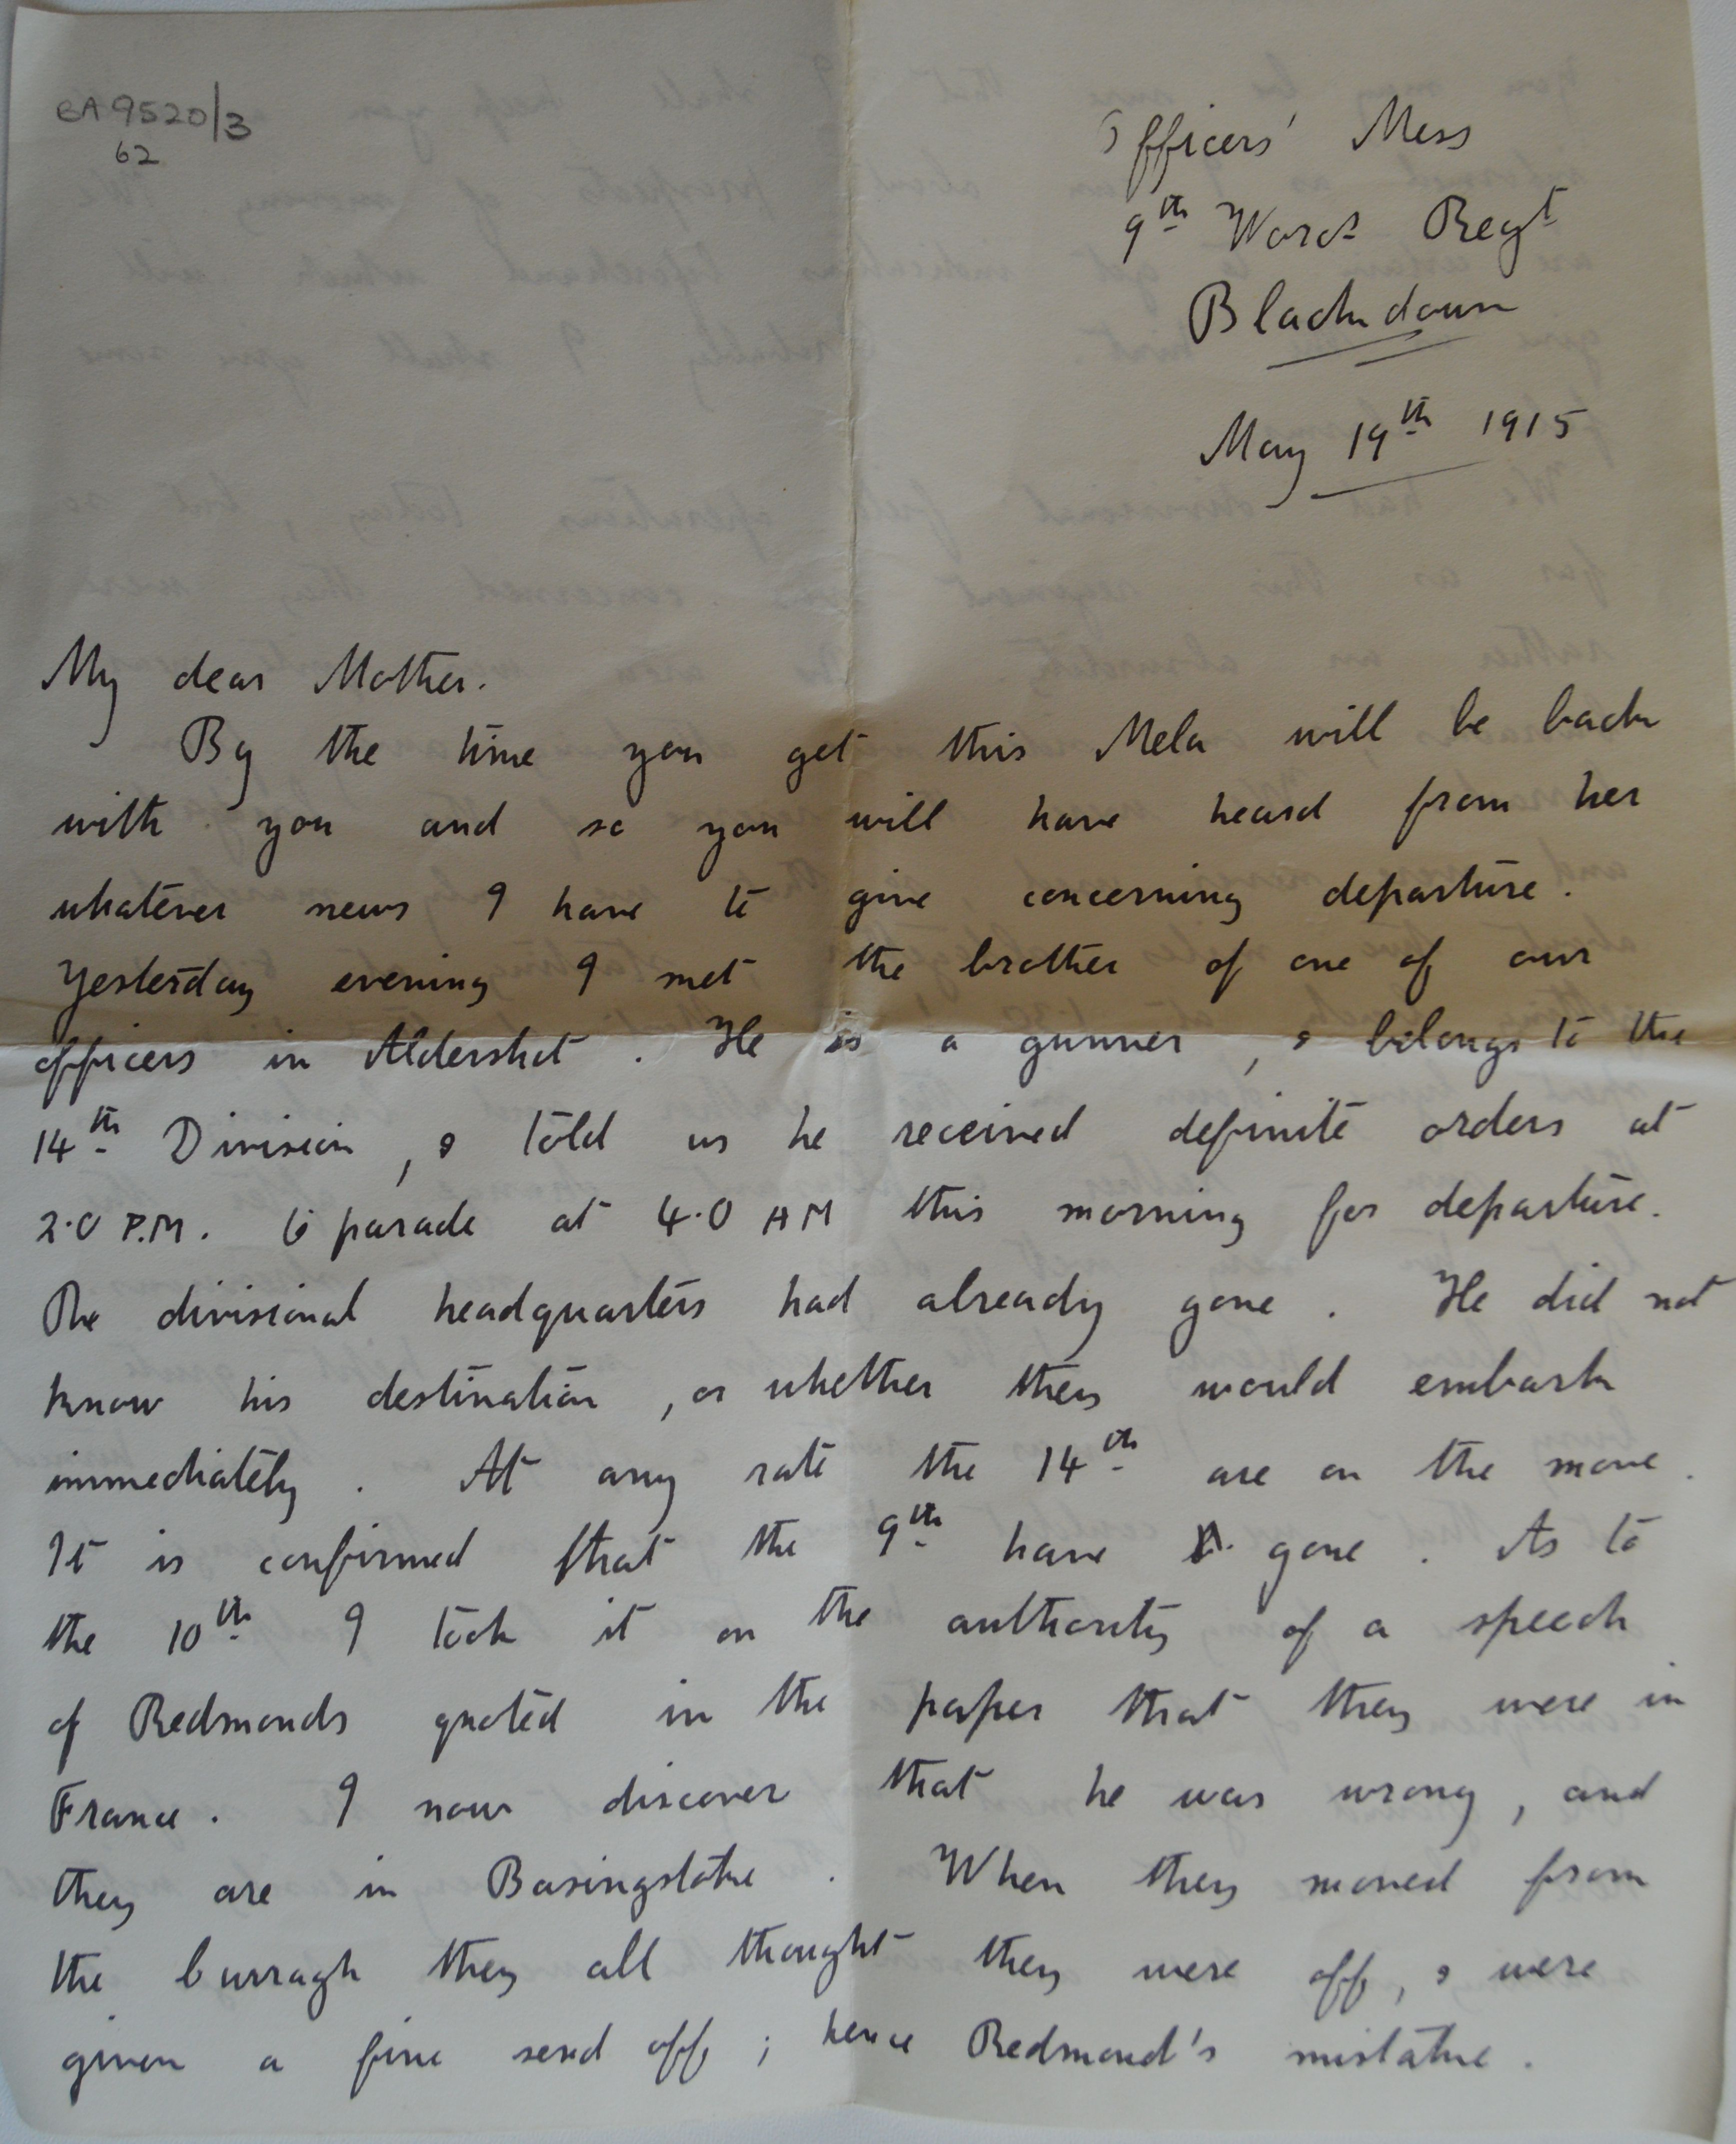 BA 9520/3
62
Officers' Mess
9th Worct Regt
Blackdown
May 19th 1915
My dear Mother.
By the time you get this Mela will be back
with you and so you will have heard from her
whatever news I have to give concerning departure.
Yesterday evening I met the brother of one of our
officers in Aldershot. He is a gunner, & belongs to the
14th Division, & told us he received definite orders at
2.0 P.M. to parade at 4.0 AM this morning for departure.
The divisional headquarters had already gone. He did not
know his destination, or whether they would embark
immediately. At any rate the 14th are on the move.
It is confirmed that the 9th have gone. As to
the 10th I took it on the authority of a speech
of Redmonds quoted in the paper that they were in
France. I now discover that he was wrong, and
they are in Basingstoke. When they moved from
the Curragh they all thought they were off, & were
given a fine send off; hence Redmond's mistake.